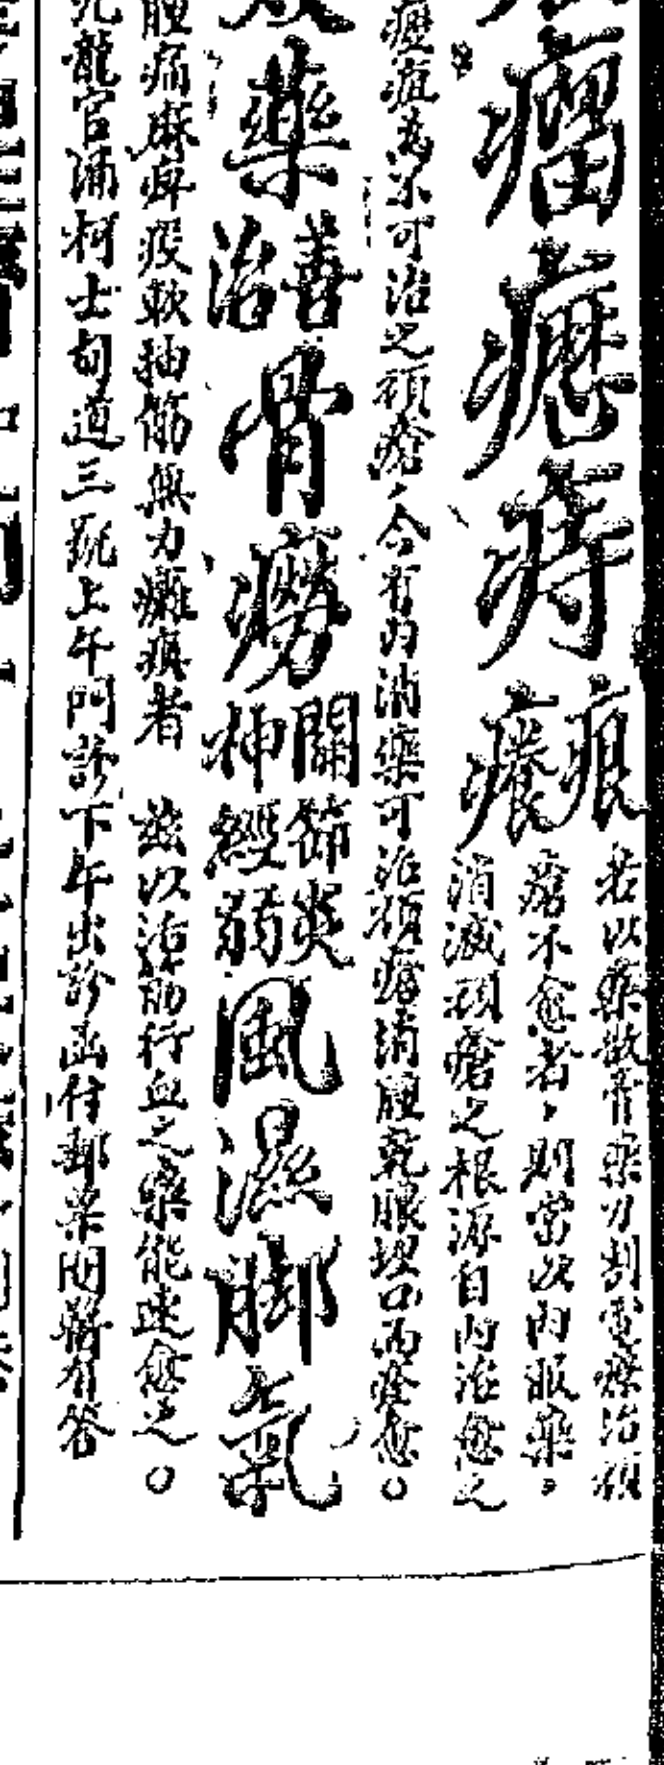 瘤瘜痔
痕
癢
若以藥散膏藥刀割電療治頑
瘡不愈者，則當以內服藥，
消滅頑瘡之根源自內治愈之
疽為不可治之頑瘡，今有內消藥可治頑瘡消腫乾膿埋口而痊愈〇
藥
善治
骨癆
關節炎
神經弱
風濕腳氣
腫痛麻痺痠軟抽筋無力癱瘓者 茲以治筋行血之藥能速愈之〇
九龍官涌柯士甸道三號上午門診下午出診函付郵票開醫有答